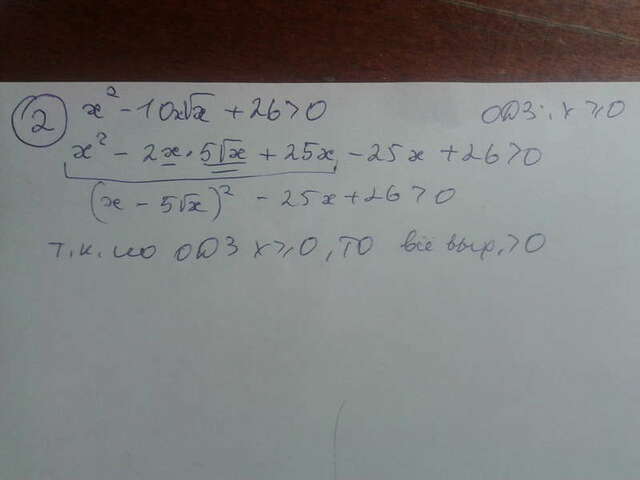 2 x² - 10x√x + 26 > 0 ОДЗ: x ≥ 0
x² - 2x · 5√x + 25x - 25x + 26 > 0
(x - 5√x)² - 25x + 26 > 0
т.к. по ОДЗ x ≥ 0, то всё выр. > 0